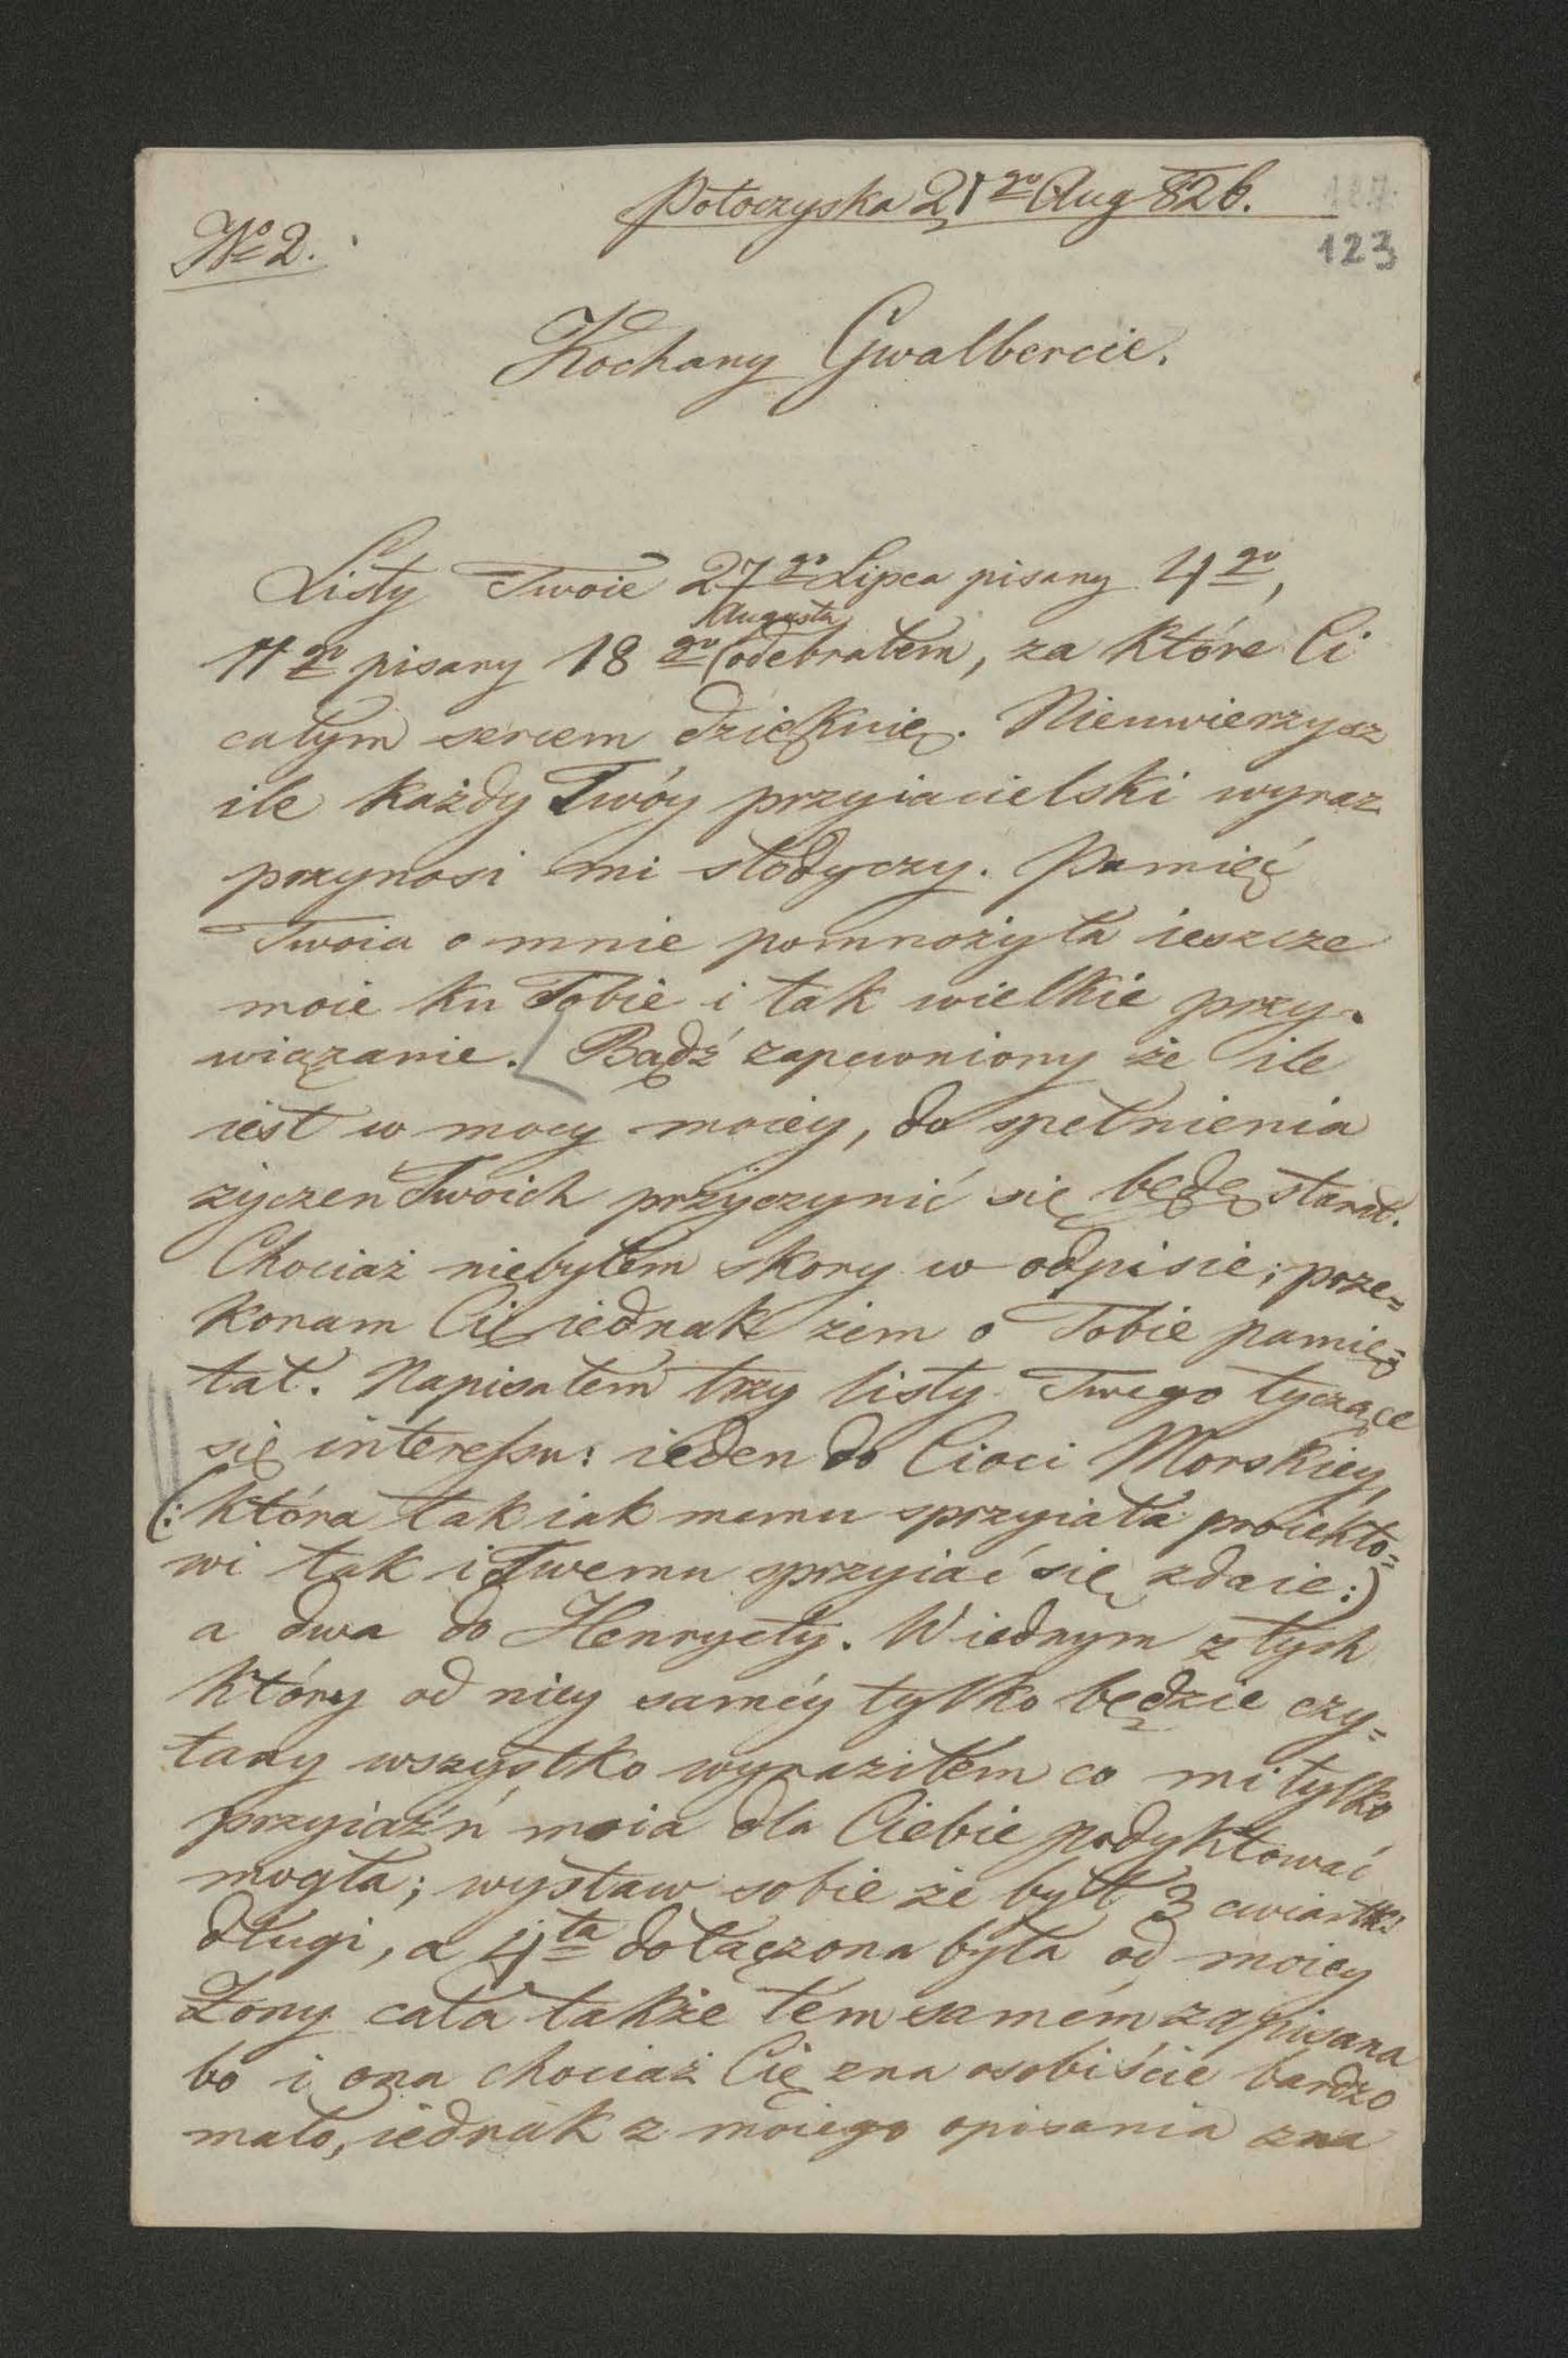 Potoczyska 21go Aug 826.
123
No 2.
Kochany Gwalbercie.
Listy Twoie 27go Lipca pisany 4go,
Augusta
11go pisany 18go odebrałem, za które Ci
całym sercem dziękuię. Nieuwierzysz
ile każdy Twóy przyiacielski wyraz
przynosi mi słodyczy. Pamięć
Twoia o mnie pomnożyła ieszcze
moie ku Tobie i tak wielkie przy-
wiązanie. Bądź zapewniony że ile
iest w mocy moiey, do spełnienia
życzen Twoich przyczynić się będę starał.
Chociaż niebyłem skory w odpisie; prze=
konam Cię iednak żem o Tobie pamię=
tał. Napisałem trzy listy Twego tyczące
się interessu: ieden do Cioci Morskiey,
(: która tak iak memu sprzyiała proiekto=
wi tak i Twemu sprzyiać się zdaie:)
a dwa do Henryety. W iednym z tych
który od niey saméy tylko będzie czy=
tany wszystko wyraziłem co mi tylko
przyiaźń moia dla Ciebie podyktować
mogła; wystaw sobie że był 3 cwiartki
długi, a 4ta dołączona była od moiey
Żony cała także tém samém zapisana
bo i ona chociaż Cię zna osobiście bardzo
mało, iednak z moiego opisania zna